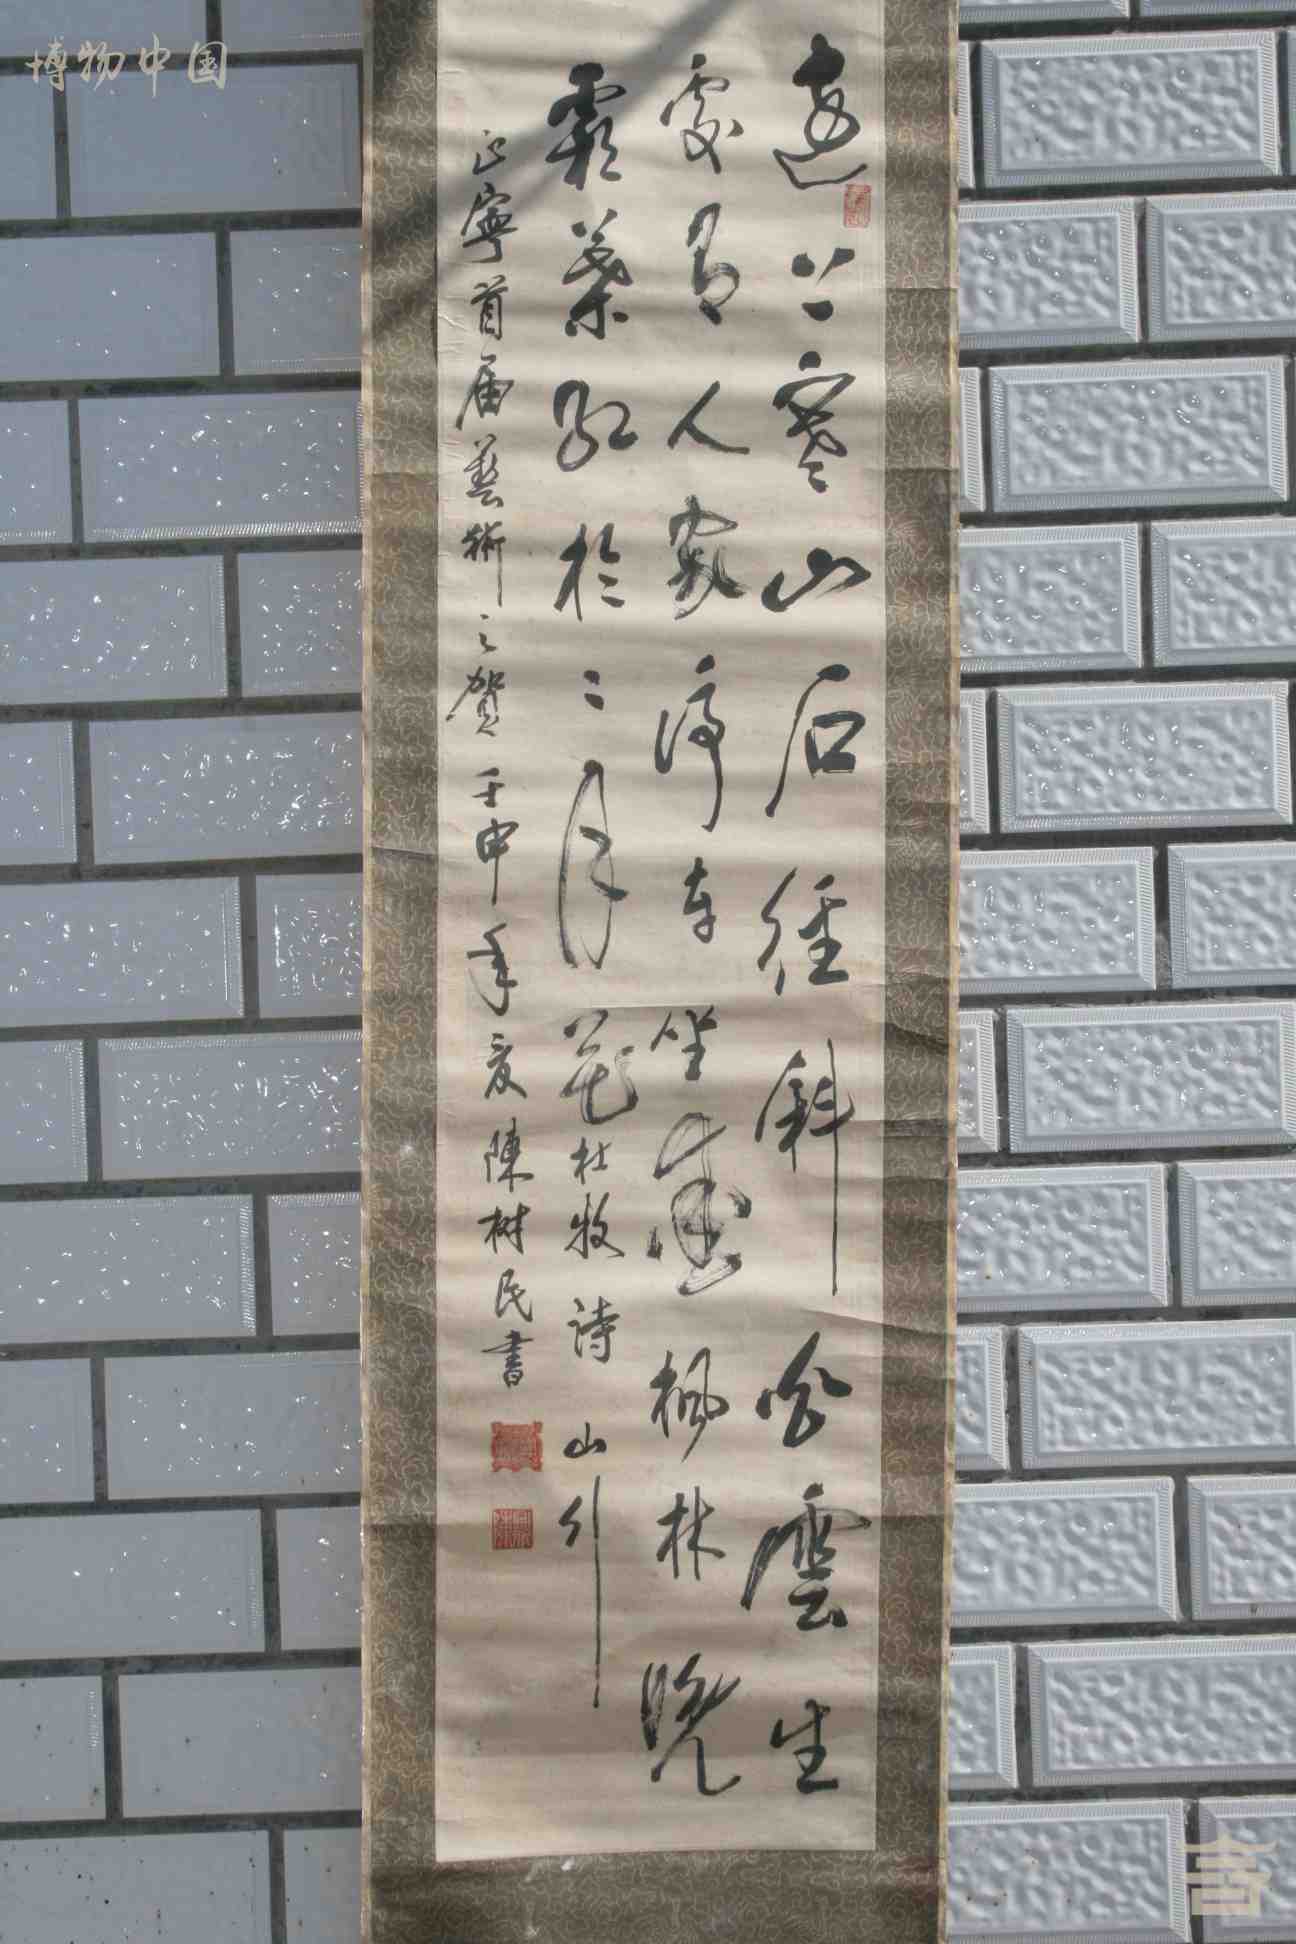 博物中国
遠上寒山石徑斜白雲生
處有人家停車坐愛楓林晚
霜葉紅於二月花杜牧詩山行
正寧首届藝術之賀壬申年夏陳树民書